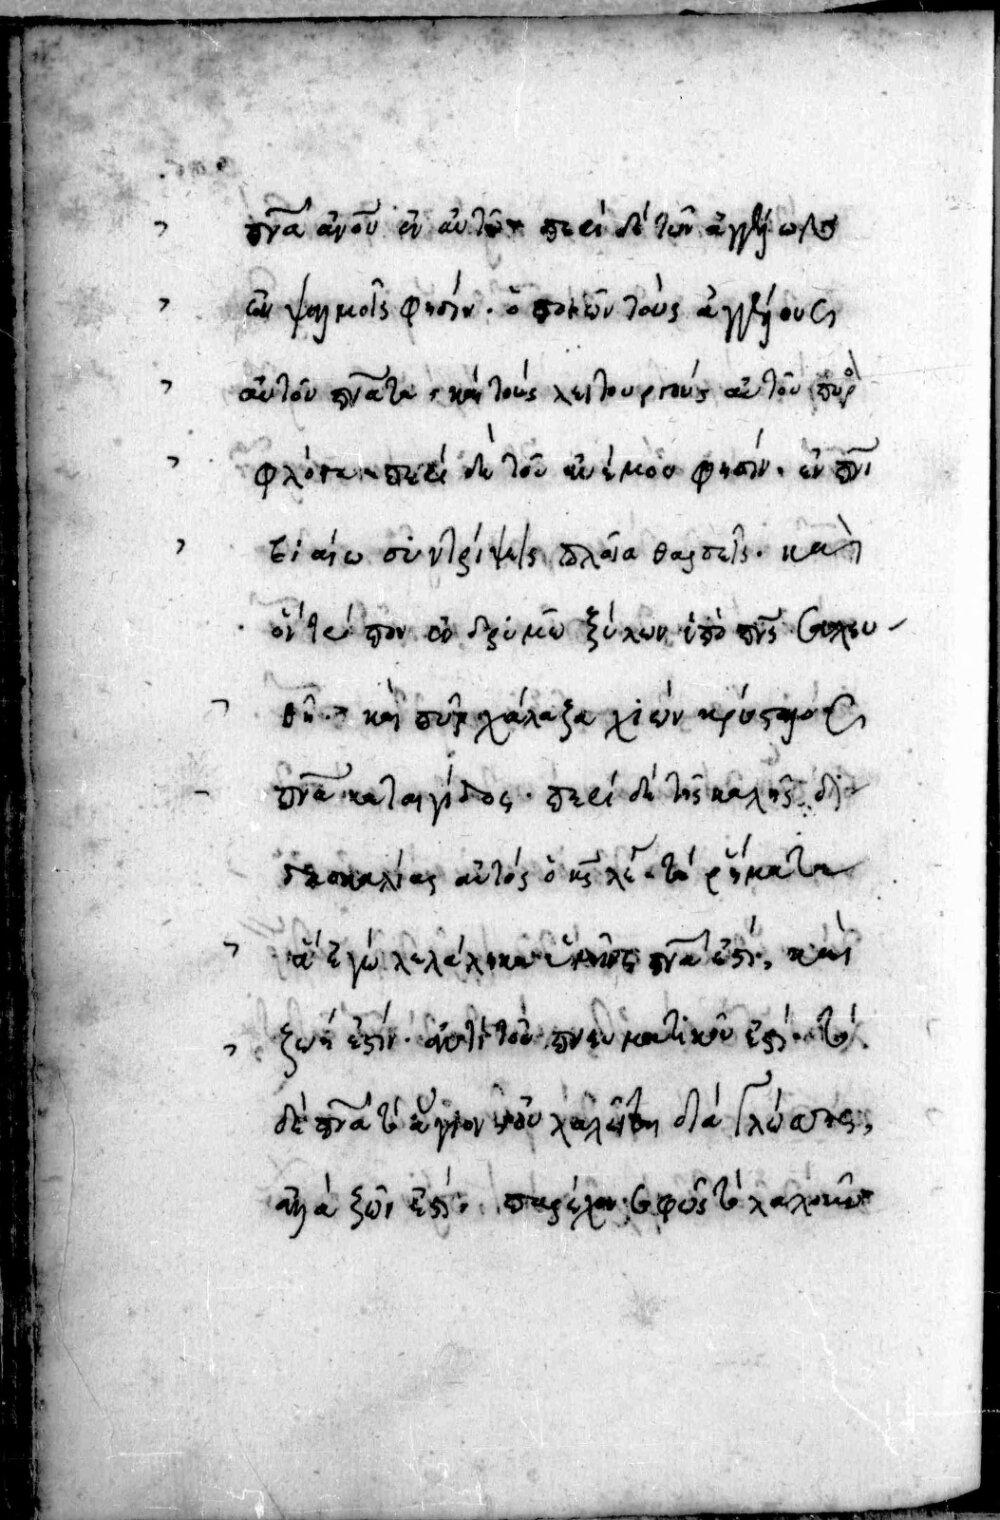 πνᾶ ἀνοῦ ἐν αὐτῶ· περὶ δὲ τῶν ἀγγέλων
ἐν ψαλμοῖς φησίν· ὁ ποιῶν τοὺς ἀγγέλους
αὐτοῦ πνᾶτα, καὶ τοὺς λειτουργοὺς αὐτοῦ πυρὸς
φλόγα· περὶ δὲ τοῦ ἀνέμου φησίν· ἐν πνι
βιαίω συντρίψεις πλοῖα θαρσεῖς· καὶ
ὃν τρόπον ἐν δρυμῶ ξύλον ὑπὸ πνς σαλευ
θῆ· καὶ πῦρ χάλαζα χιὼν κρύσταλλος
πνᾶ καταιγίδος· περὶ δὲ τῆς καλῆς δι
δασκαλίας αὐτός ὁ κς λέ· τὰ ῥήματα
ἃ ἐγὼ λελάληκα ὑμῖν πνᾶ ἐστι, καὶ
ζωή ἐστιν· ἀντὶ τοῦ πνευματικοῦ ἐστι· τὸ
δὲ πνᾶ τὸ ἅγιον οὐ λαλεῖται διὰ γλώσσης,
ἀλλὰ ζῶν ἐστι· παρέχον σαφῶς τὸ λαλεῖν